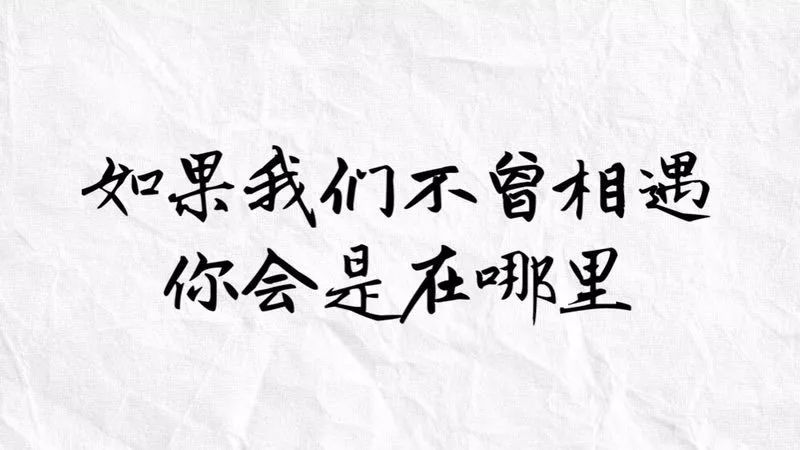 如果我们不曾相遇
你会是在哪里